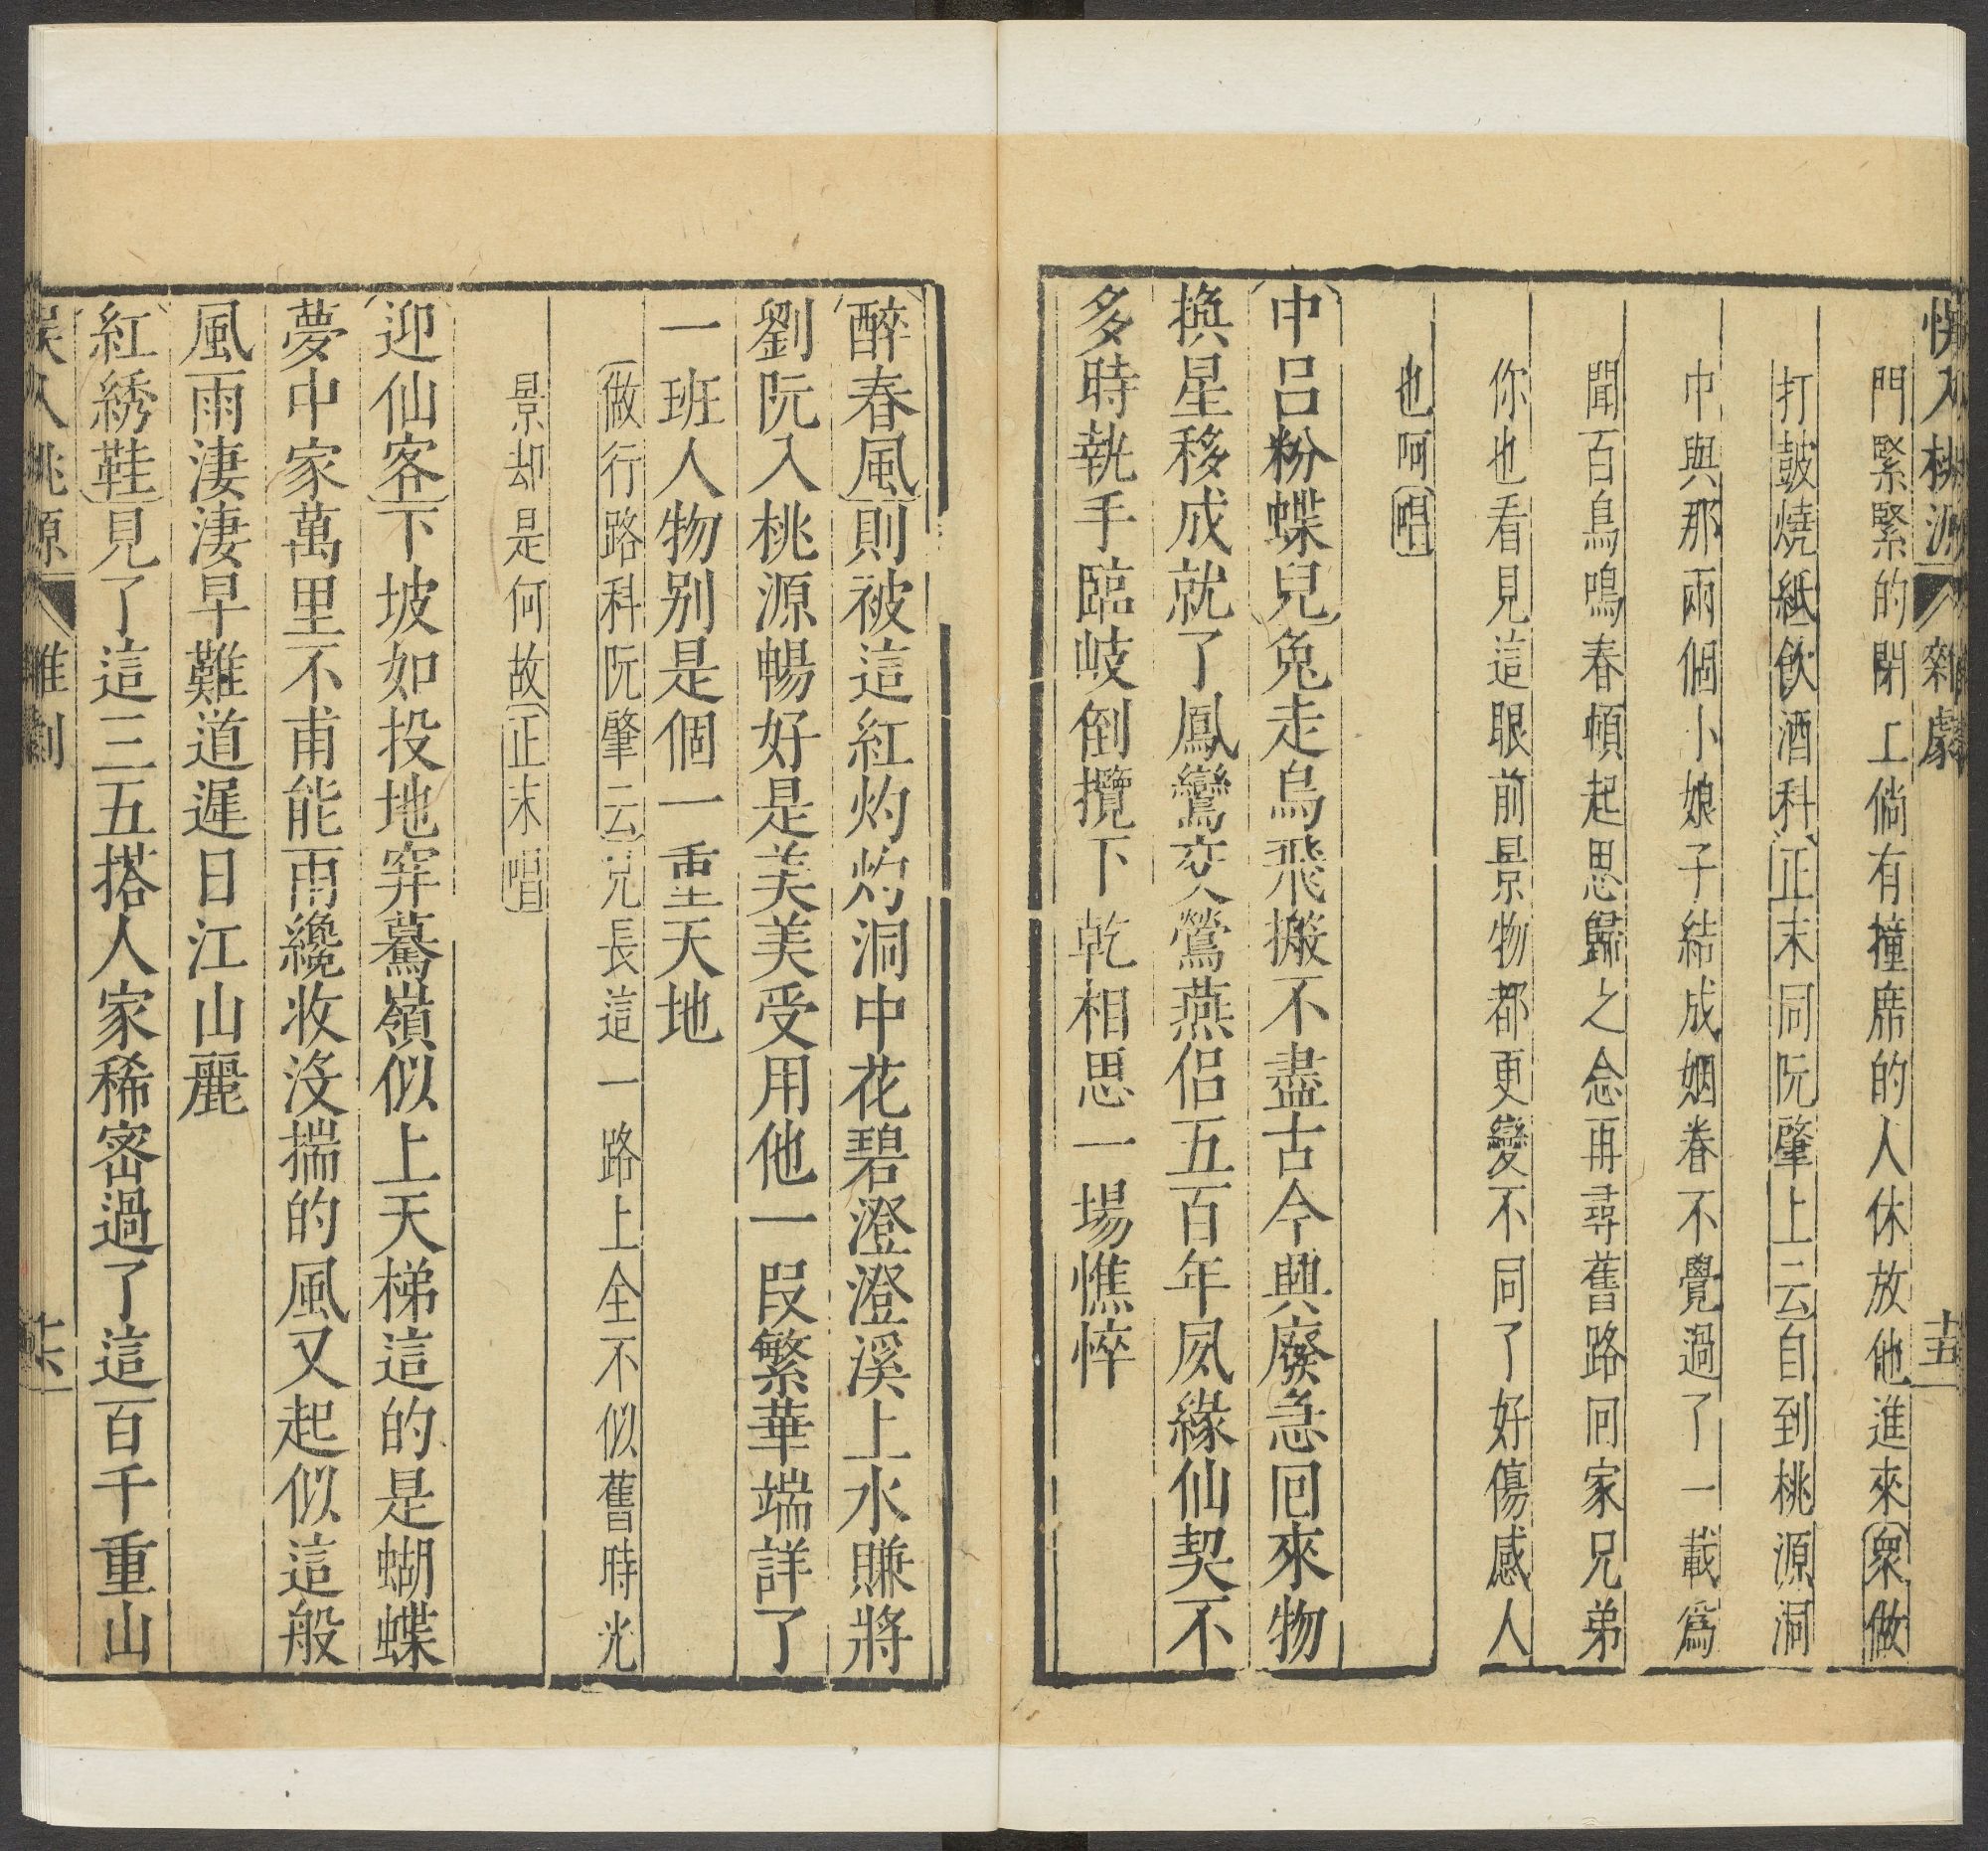 悞入桃源 雜劇 十五
門緊緊的閉上倘有撞席的人休放他進來衆做
打皷燒紙飲酒科正末同阮肇上云自到桃源洞
中與那兩個小娘子結成姻眷不覺過了一載爲
聞百鳥鳴春頓起思歸之念再尋舊路回家兄弟
你也看見這眼前景物都更變不同了好傷感人
也阿唱
中吕粉蝶兒兔走烏飛搬不盡古今興廢急回來物
換星移成就了鳳鸞交鶯燕侣五百年夙緣仙契不
多時執手臨岐倒攬下乾相思一場憔悴
醉春風則被這紅灼灼洞中花碧澄澄溪上水賺將
劉阮入桃源暢好是美美受用他一段繁華端詳了
一班人物别是個一重天地
做行路科阮肇云兄長這一路上全不似舊時光
景却是何故正末唱
迎仙客下坡如投地穽驀嶺似上天梯這的是蝴蝶
夢中家萬里不甫能雨纔收没揣的風又起似這般
風雨淒淒早難道遲日江山麗
紅綉鞋見了這三五搭人家稀密過了這百千重山
悞入桃源 雜劇 十六